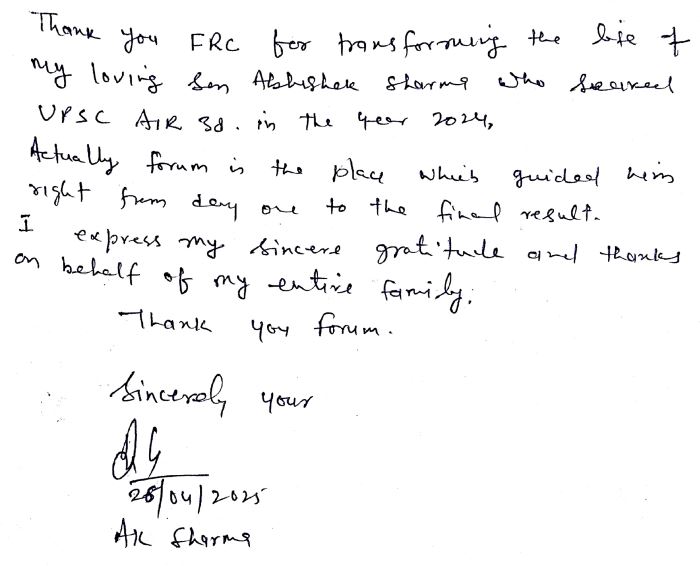 Thank you FRC for transforming the life of
my loving Son Abhishek Sharma who secured
UPSC AIR 38. in the year 2024,
Actually forum is the place which guided him
right from day one to the final result.
I express my sincere gratitude and thanks
on behalf of my entire family.
Thank you forum.
Sincerely your
28/04/2025
AK Sharma